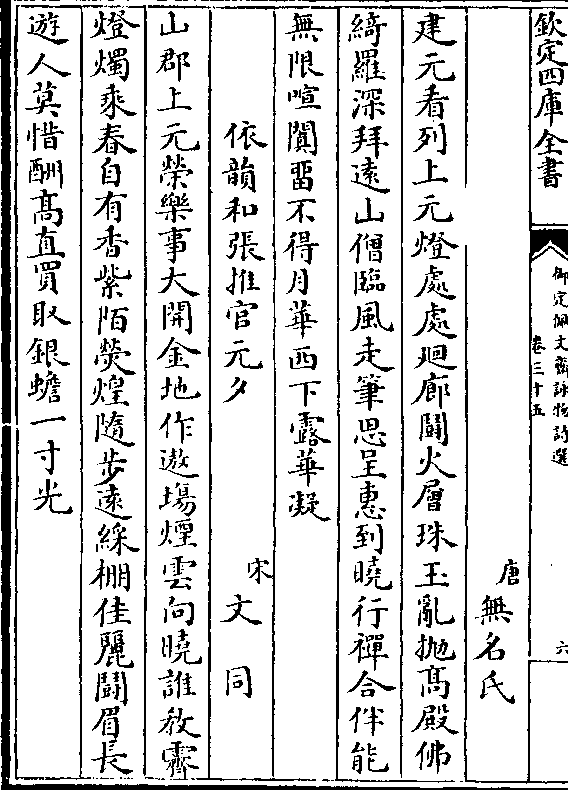 欽定四庫全書
御定佩文齋詠物詩選
卷三十五
六
唐無名氏
建元看列上元燈處處廻廊鬭火層珠玉亂抛髙殿佛
綺羅深拜逺山僧臨風走筆思呈惠到曉行禪合伴能
無限喧闐畱不得月華西下露華凝
依韻和張推官元夕
宋文同
山郡上元榮樂事大開金地作遨塲煙雲向曉誰教霽
燈燭乘春自有香紫陌熒煌隨步逺綵棚佳麗鬭眉長
遊人莫惜酬髙直買取銀蟾一寸光